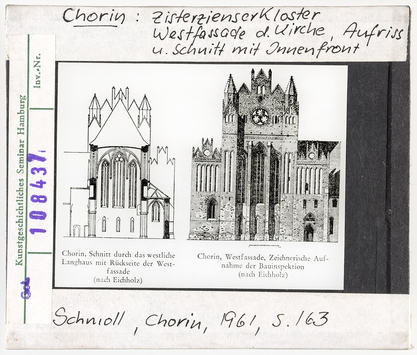 Chorin: Zisterzienserkloster
Westfassade d. Kirche, Aufriss
u. Schnitt mit Innenfront
Kunstgeschichtliches Seminar Hamburg
Inv.-Nr.
108437
Chorin, Schnitt durch das westliche
Langhaus mit Rückseite der West-
fassade
(nach Eichholz)
Chorin, Westfassade, Zeichnerische Auf-
nahme der Bauinspektion
(nach Eichholz)
Schmoll, Chorin, 1961, S. 163